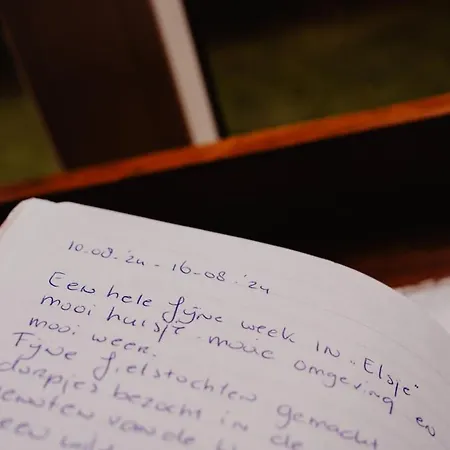 10-08-'24 - 16-08-'24
Een hele fijne week in "Elsje"
mooi huisje mooie omgeving en
mooi weer.
Fijne fietstochten gemacht
dorpjes bezocht in de
genoten van de
een